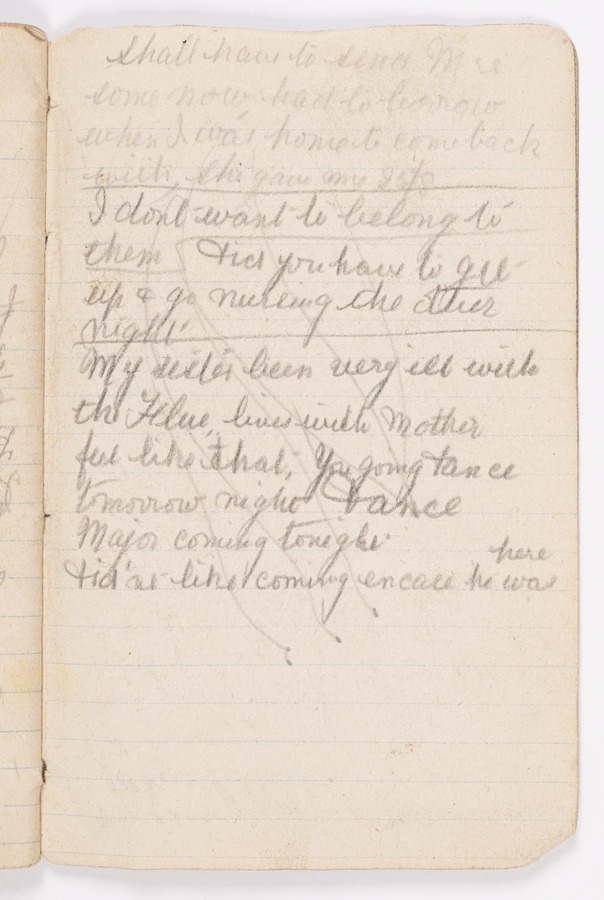 shall have to send Mrs
some now had to borrow
when I was home to come back
with, she gave my
I dont want to belong to
them Did you have to get
up & go nursing the other
night
My sisters been very ill with
the Flue, lives with Mother
feel like that, You going Dance
tmorrow night Dance
Major coming tonight
here
Did'nt like coming encase he was